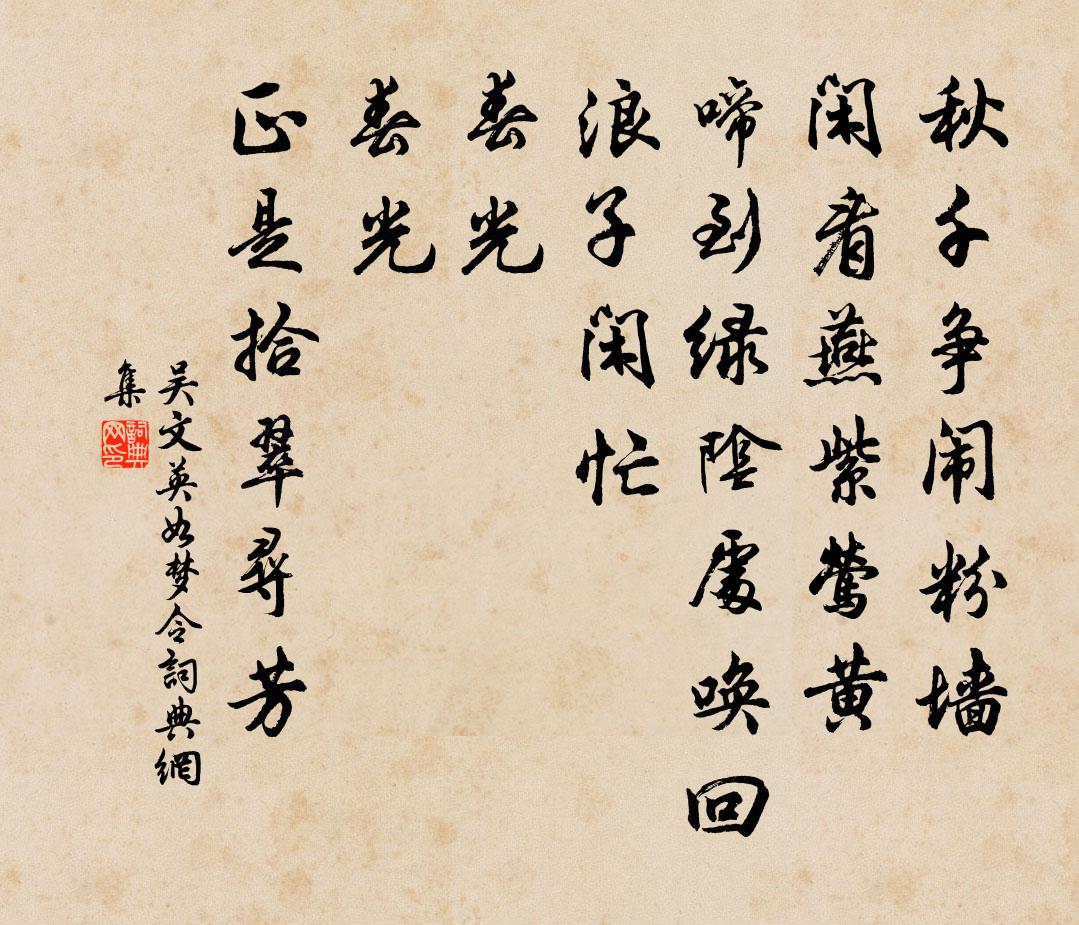 秋千争闹粉墙
闲看燕紫莺黄
啼到绿阴處唤回
浪子闲忙
春光
春光
正是拾翠尋芳
吴文英如梦令詞典網
集
詞典网印